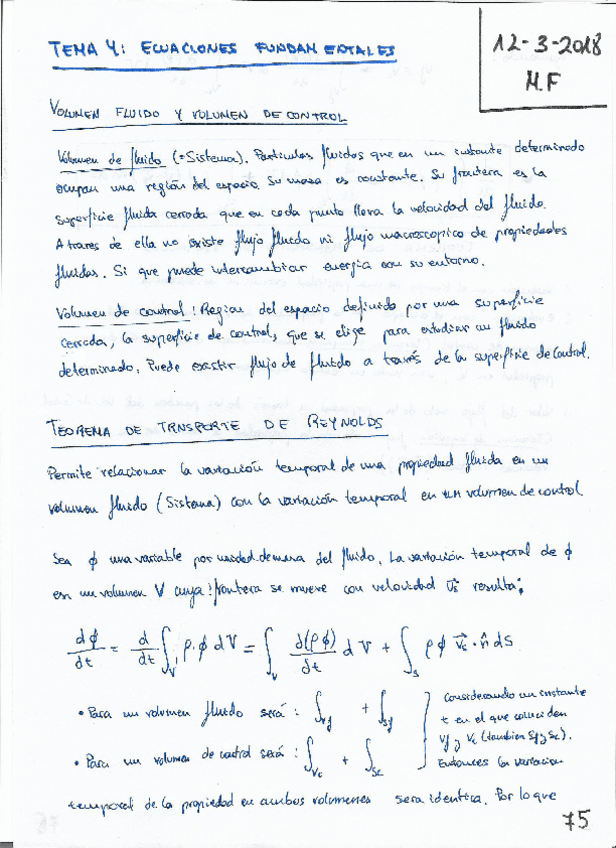 TEMA 4: ECUACIONES FUNDAMENTALES
12-3-2018
M.F
VOLUMEN FLUIDO Y VOLUMEN DE CONTROL
Volumen de fluido (=Sistema). Particulas fluidas que en un instante determinado
ocupan una región del espacio. Su masa es constante. Su frontera es la
superficie fluida cerrada que en cada punto lleva la velocidad del fluido.
A traves de ella no existe flujo fluido ni flujo macroscopico de propiedades
fluidas. Si que puede intercambiar energía con su entorno.
Volumen de control: Region del espacio definido por una superficie
cerrada, la superficie de control, que se elige para estudiar un fluido
determinado. Puede existir flujo de fluido a través de la superficie de control.
TEOREMA DE TRNSPORTE DE REYNOLDS
Permite relacionar la variación temporal de una propiedad fluida en un
volumen fluido (Sistema) con la variación temporal en un volumen de control.
Sea ϕ una variable por unidad de masa del fluido. La variación temporal de ϕ
en un volumen V cuya frontera se mueve con velocidad v⃗s resulta:
dϕ/dt = d/dt ∫V ρ·ϕ dV = ∫V ∂(ρϕ)/∂t dV + ∫S ρϕ v⃗s·n̂ dS
• Para un volumen fluido será: ∫Vf + ∫Sf
• Para un volumen de control será: ∫Vc + ∫Sc
Considerando un instante
t en el que coinciden
Vf y Vc (tambien Sf y Sc).
Entonces la variacion
temporal de la propiedad en ambos volumenes sera identica. Por lo que
75